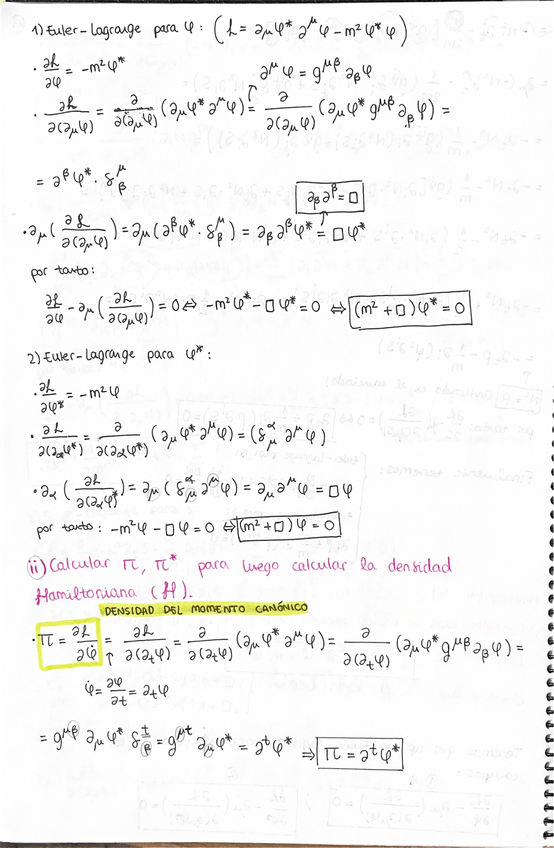 1) Euler-Lagrange para φ: (ℒ = ∂μφ* ∂^μφ - m²φ*φ)
· ∂ℒ/∂φ = -m²φ*
∂^μφ = g^μβ ∂βφ
· ∂ℒ/∂(∂μφ) = ∂/∂(∂μφ) (∂μφ* ∂^μφ) = ∂/∂(∂μφ) (∂μφ* g^μβ ∂βφ) =
= ∂^βφ* · δ^μ_β
∂β∂^β = □
· ∂μ(∂ℒ/∂(∂μφ)) = ∂μ(∂^βφ* · δ^μ_β) = ∂β∂^βφ* = □φ*
por tanto:
∂ℒ/∂φ - ∂μ(∂ℒ/∂(∂μφ)) = 0 ⇔ -m²φ* - □φ* = 0 ⇔ (m² + □)φ* = 0
2) Euler-Lagrange para φ*:
· ∂ℒ/∂φ* = -m²φ
· ∂ℒ/∂(∂αφ*) = ∂/∂(∂αφ*) (∂μφ* ∂^μφ) = (δ^α_μ ∂^μφ)
· ∂α(∂ℒ/∂(∂αφ*)) = ∂α(δ^α_μ ∂^μφ) = ∂μ∂^μφ = □φ
por tanto: -m²φ - □φ = 0 ⇔ (m² + □)φ = 0
ii) Calcular π, π* para luego calcular la densidad
Hamiltoniana (H).
DENSIDAD DEL MOMENTO CANÓNICO
· π = ∂ℒ/∂φ̇ = ∂ℒ/∂(∂tφ) = ∂/∂(∂tφ) (∂μφ* ∂^μφ) = ∂/∂(∂tφ) (∂μφ* g^μβ ∂βφ) =
φ̇ = ∂φ/∂t = ∂tφ
= g^μβ ∂μφ* δ^t_β = g^μt ∂μφ* = ∂^tφ* ⇒ π = ∂^tφ*